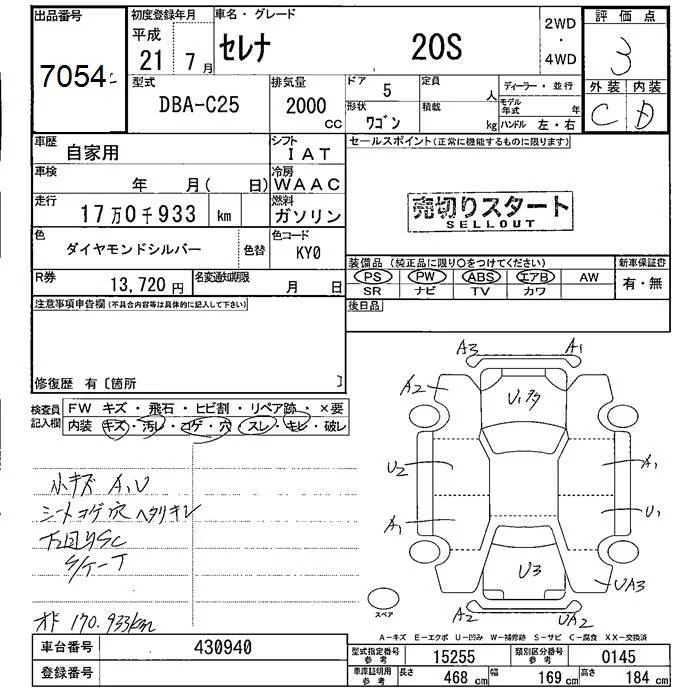 出品番号
7054
初度登録年月
平成
21 7月
車名・グレード
セレナ 20S
2WD
・
4WD
評価点
3
外装 内装
C D
型式
DBA-C25
排気量
2000 CC
ドア 5
定員 人
形状 ワゴン
積載 kg
ディーラー・並行
モデル年式 年
ハンドル 左・右
車歴
自家用
シフト
IAT
車検
年 月( 日)
冷房
WAAC
走行
17万0千933 km
燃料
ガソリン
色
ダイヤモンドシルバー
色替
色コード
KY0
R券
13,720円
名変通知期限
月 日
セールスポイント(正常に機能するものに限ります)
売切りスタート
SELLOUT
装備品(純正品に限り○をつけてください)
PS PW ABS エアB AW
SR ナビ TV カワ
新車保証書
有・無
後日品
注意事項申告欄(不具合内容等は具体的に記入して下さい)
修復歴 有〔箇所 〕
検査員記入欄
FW キズ・飛石・ヒビ割・リペア跡・×要
内装 キズ・汚レ・コゲ・穴・スレ・キレ・破レ
小キズ A,U
シートコゲ穴 ヘタリキレ
下回りSC
オド 170.933km
A3 A1
A2
U1多
U2 A1
A1 U1
U3
UA3
A2 UA2
スペア
A-キズ E-エクボ U-凹み W-補修跡 S-サビ C-腐食 XX-交換済
車台番号 430940
登録番号
型式指定番号参考 15255
類別区分番号参考 0145
車庫証明用参考
長さ 468 cm
幅 169 cm
高さ 184 cm